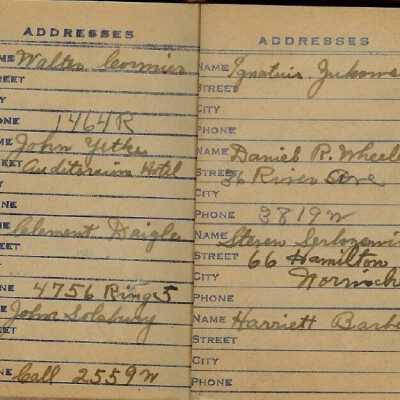 ADDRESSES
ME Walter Cormier
REET
TY
ONE 1464R
ME John Yitke
REET Auditorium Hotel
TY
ONE
ME Clement Daigle
REET
TY
ONE 4756 Ring 5
ME John Solsbury
REET
TY
ONE Call 2559W
ADDRESSES
NAME Ignatius
STREET
CITY
PHONE
NAME Daniel R. Wheele
STREET 36 River Ave
CITY
PHONE 3819W
NAME Steven
STREET 66 Hamilton
CITY Norwich
PHONE
NAME Harriett Barbe
STREET
CITY
PHONE